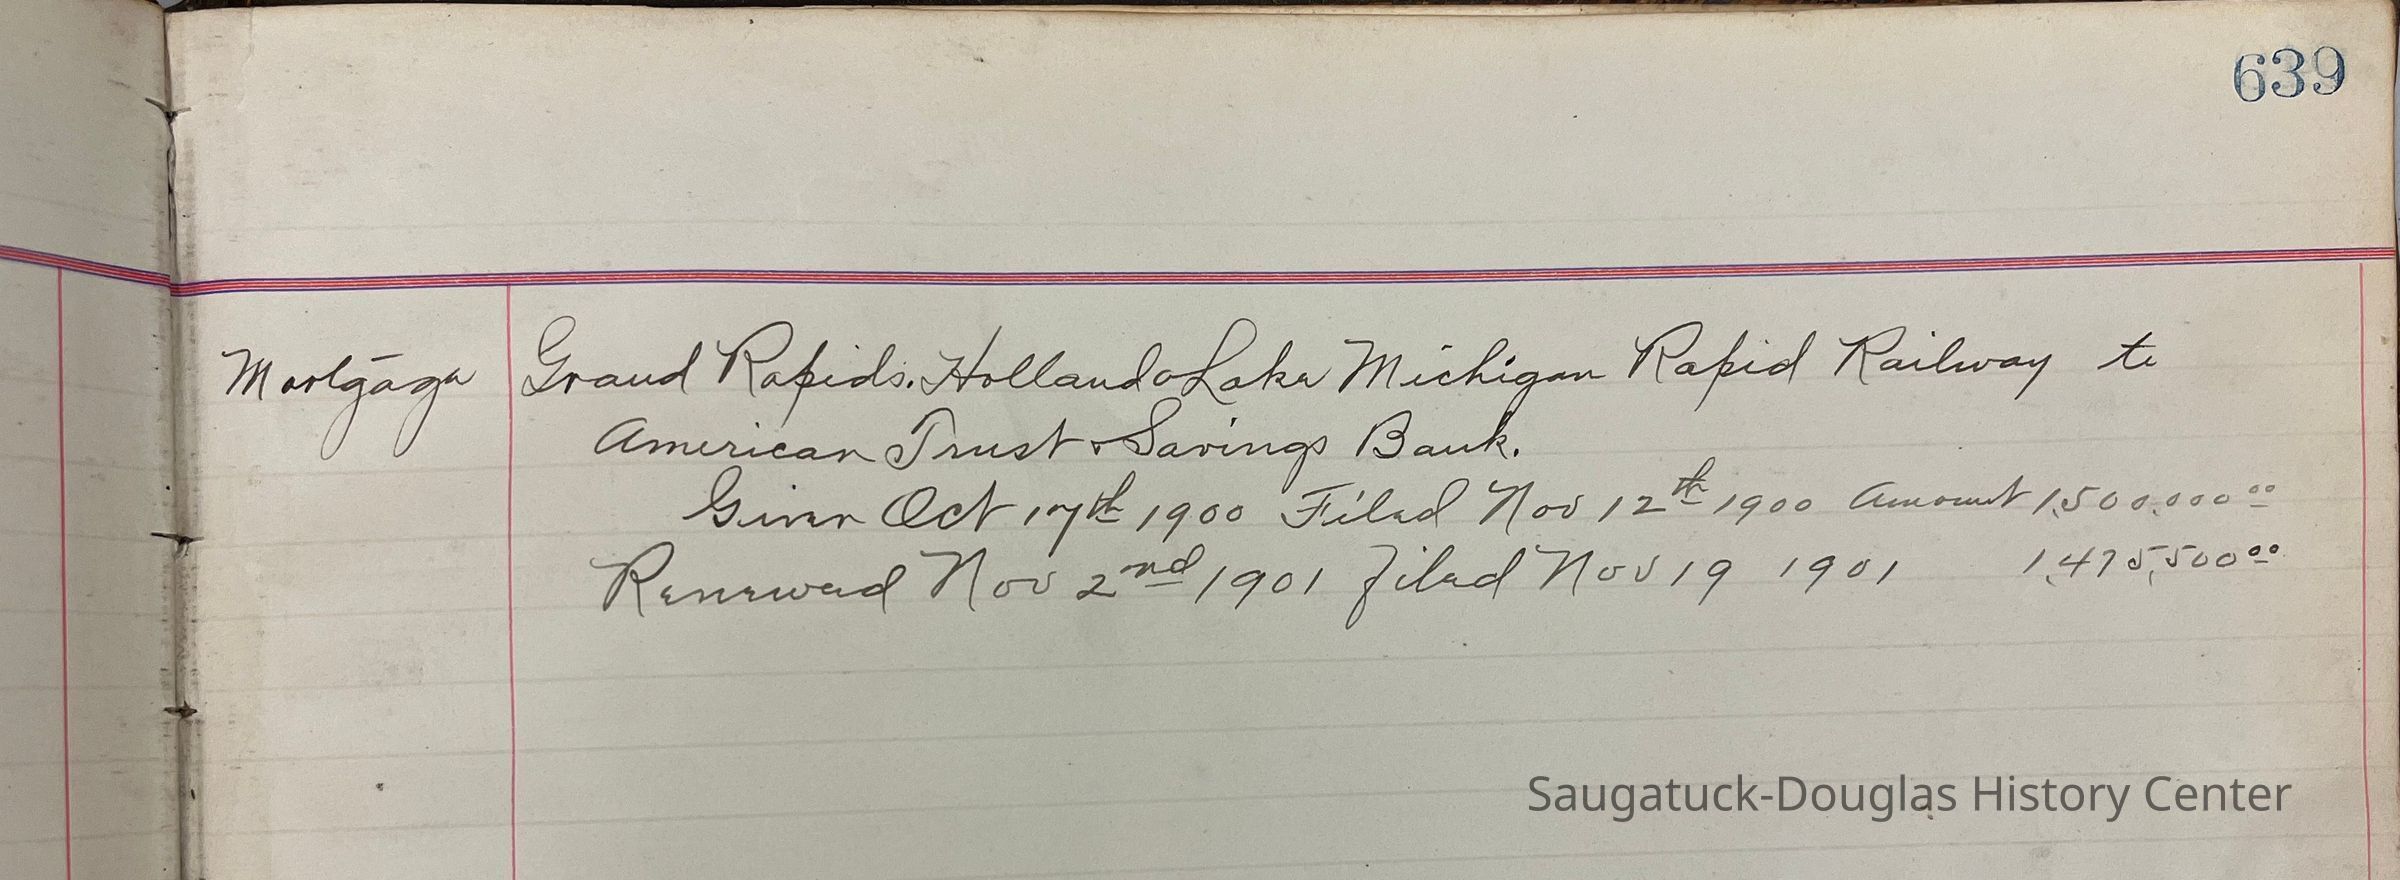 639
Mortgage Grand Rapids. Holland & Lake Michigan Rapid Railway to
American Trust & Savings Bank.
Given Oct 17th 1900 Filed Nov 12th 1900 Amount 1,500,000 00
Renewed Nov 2nd 1901 Filed Nov 19 1901 1,475,500 00
Saugatuck-Douglas History Center